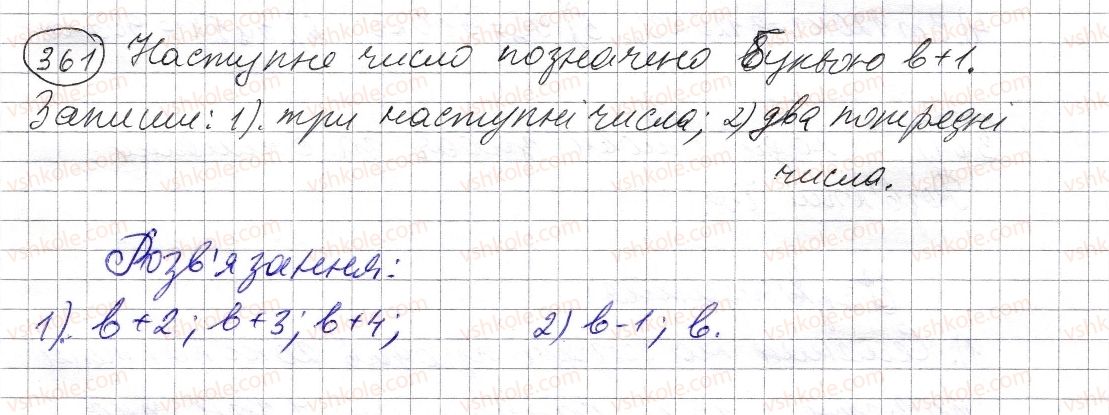 361 Наступне число позначено буквою b+1.
Запиши: 1). три наступні числа; 2) два попередні
числа.
Розв'язання:
1). b+2; b+3; b+4; 2) b-1; b.